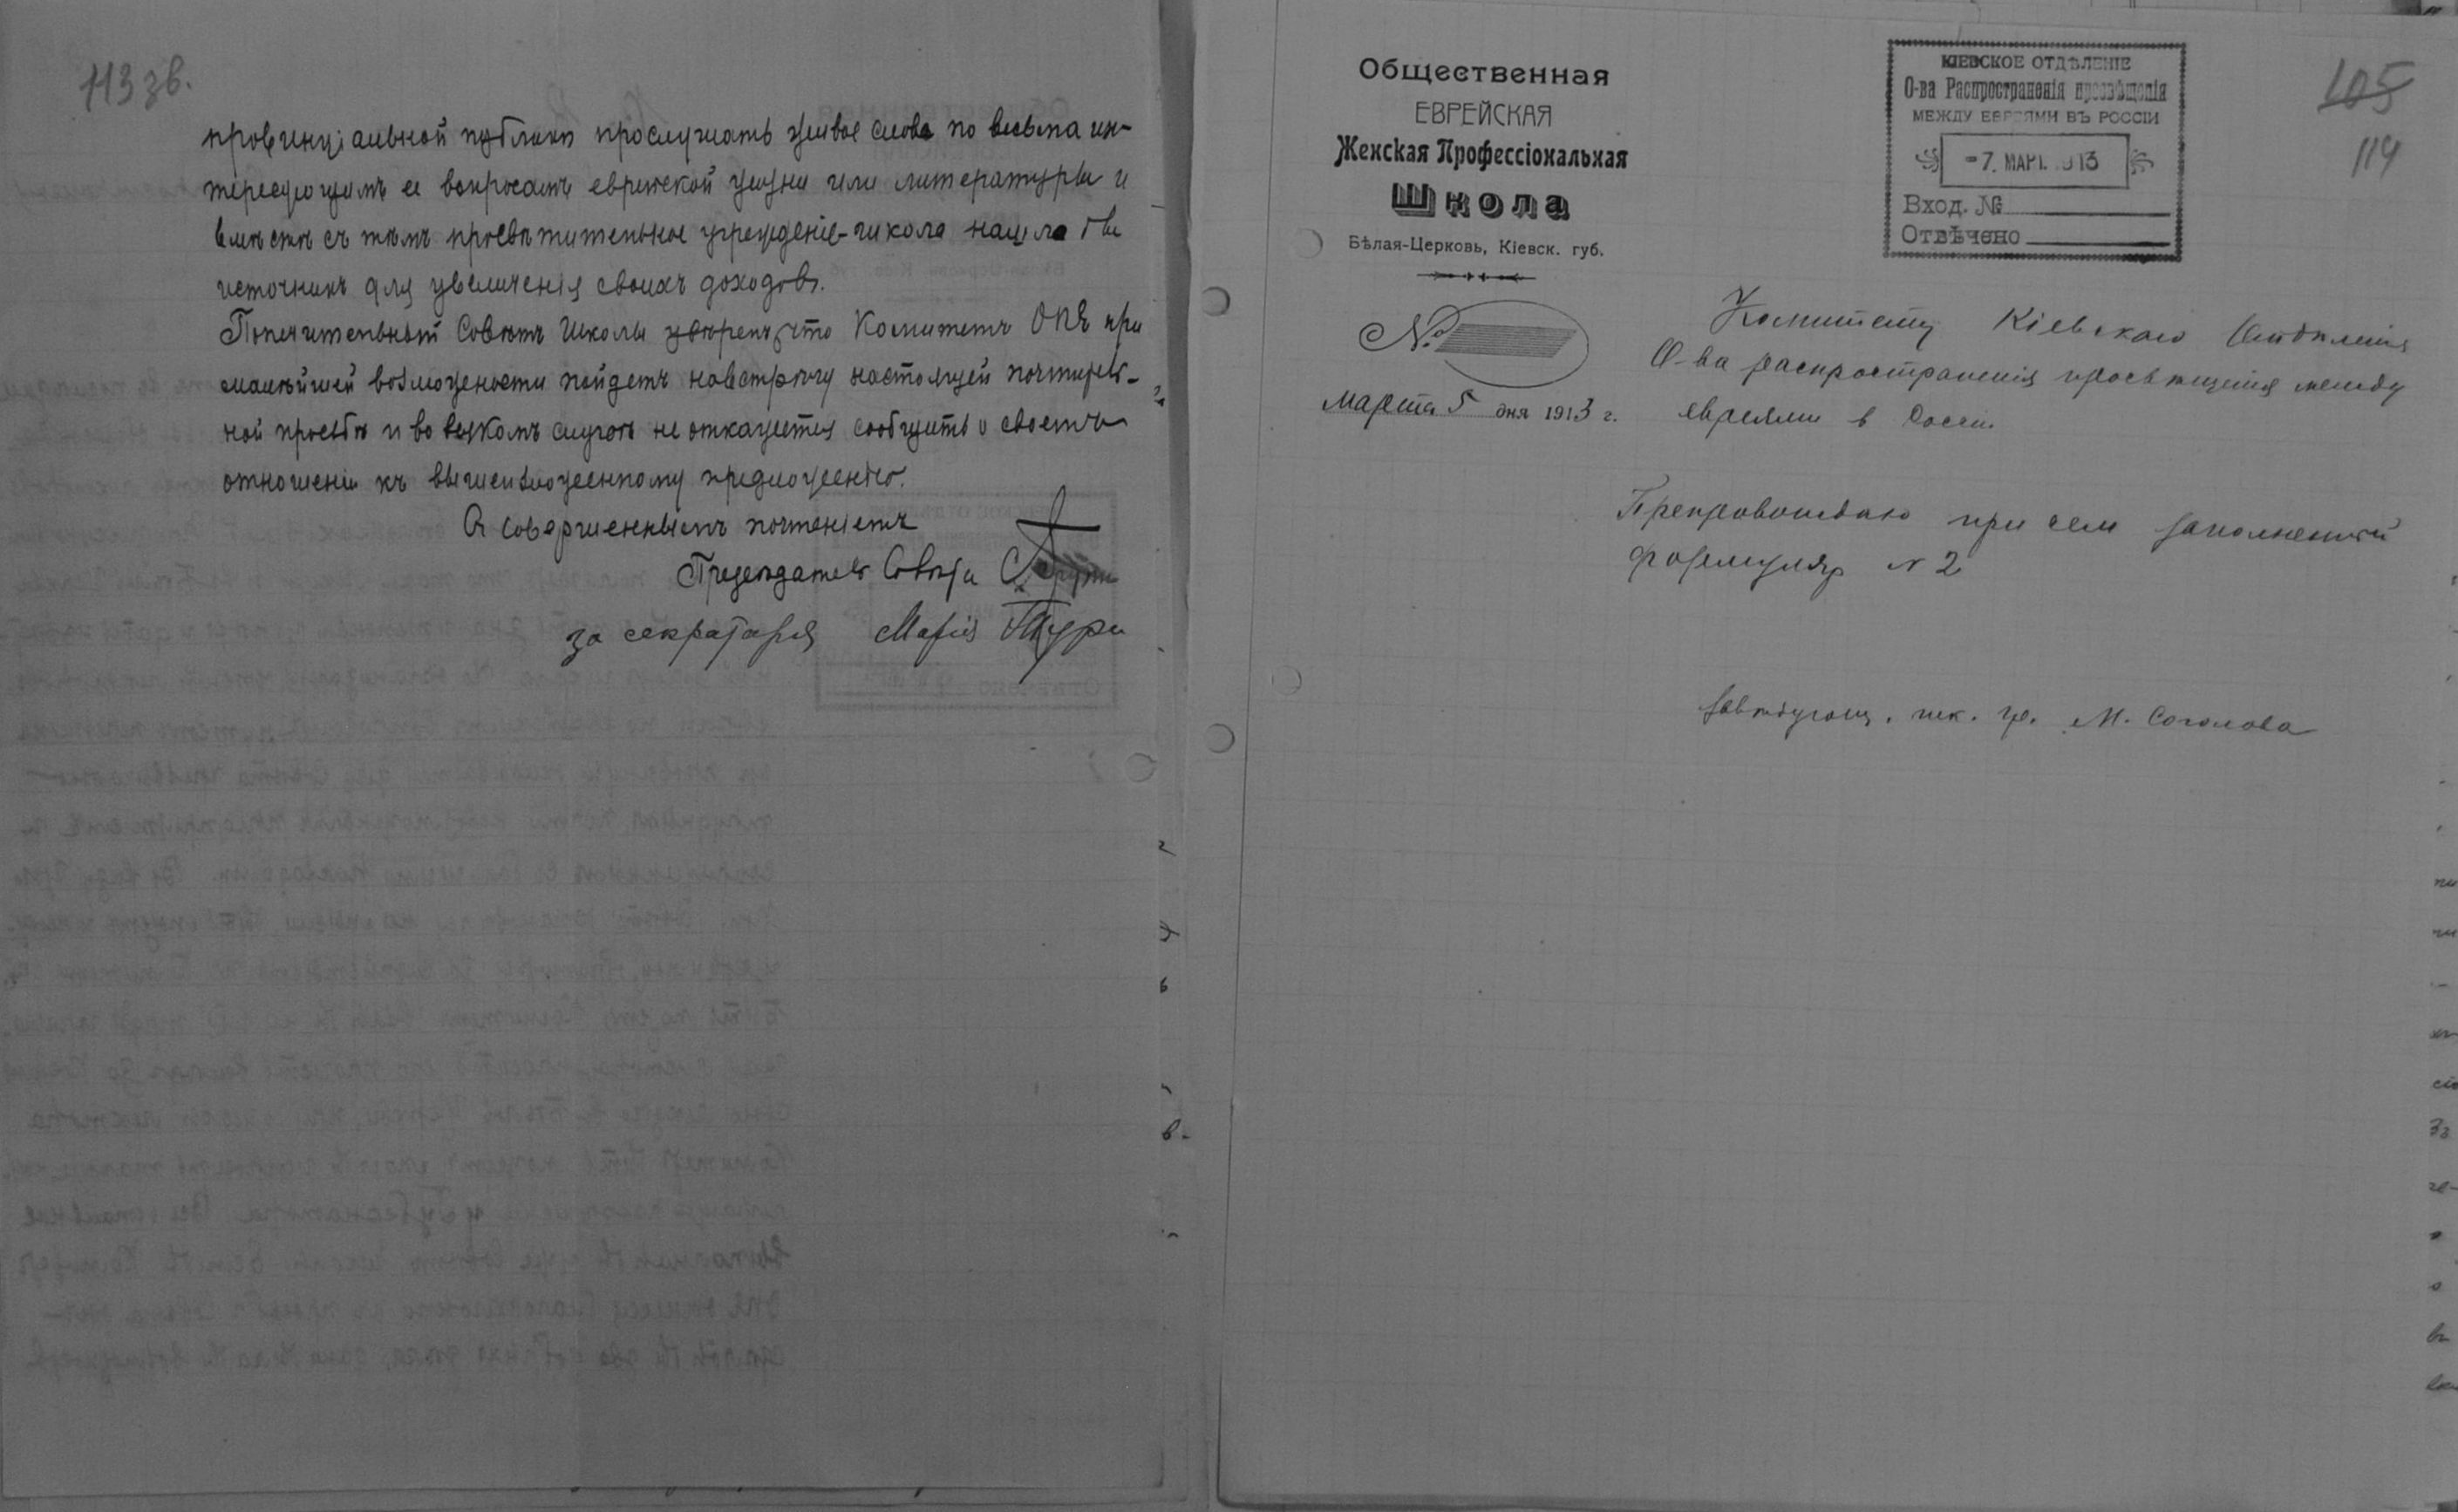 113 зв.
провинціальной публикѣ прослушать живое слово по весьма ин-
тересующимъ ее вопросамъ еврейской жизни или литературы и
вмѣстѣ съ тѣмъ просвѣтительное учрежденіе-школа нашла бы
источникъ для увеличенія своихъ доходовъ.
Попечительный Совѣтъ Школы увѣренъ, что Комитетъ ОПЕ при
малѣйшей возможности пойдетъ навстрѣчу настоящей почтитель-
ной просьбѣ и во всякомъ случаѣ не откажется сообщить о своемъ
отношеніи къ вышеизложенному предложенію.
Съ совершеннымъ почтеніемъ
Предсѣдатель Совѣта
за секретаря Марія
Общественная
ЕВРЕЙСКАЯ
Женская Профессіональная
Школа
Бѣлая-Церковь, Кіевск. губ.
№
Марта 5 дня 1913 г.
КІЕВСКОЕ ОТДѢЛЕНІЕ
О-ва Распространенія просвѣщенія
МЕЖДУ ЕВРЕЯМИ ВЪ РОССІИ
-7. МАРТ. 1913
Вход. №
Отвѣчено
105
114
Комитету Кіевскаго Отдѣленія
О-ва распространенія просвѣщенія между
евреями в Россіи
Препровождаю при сем заполненный
формуляр № 2
Завѣдующ. шк. гр. М. Соколова